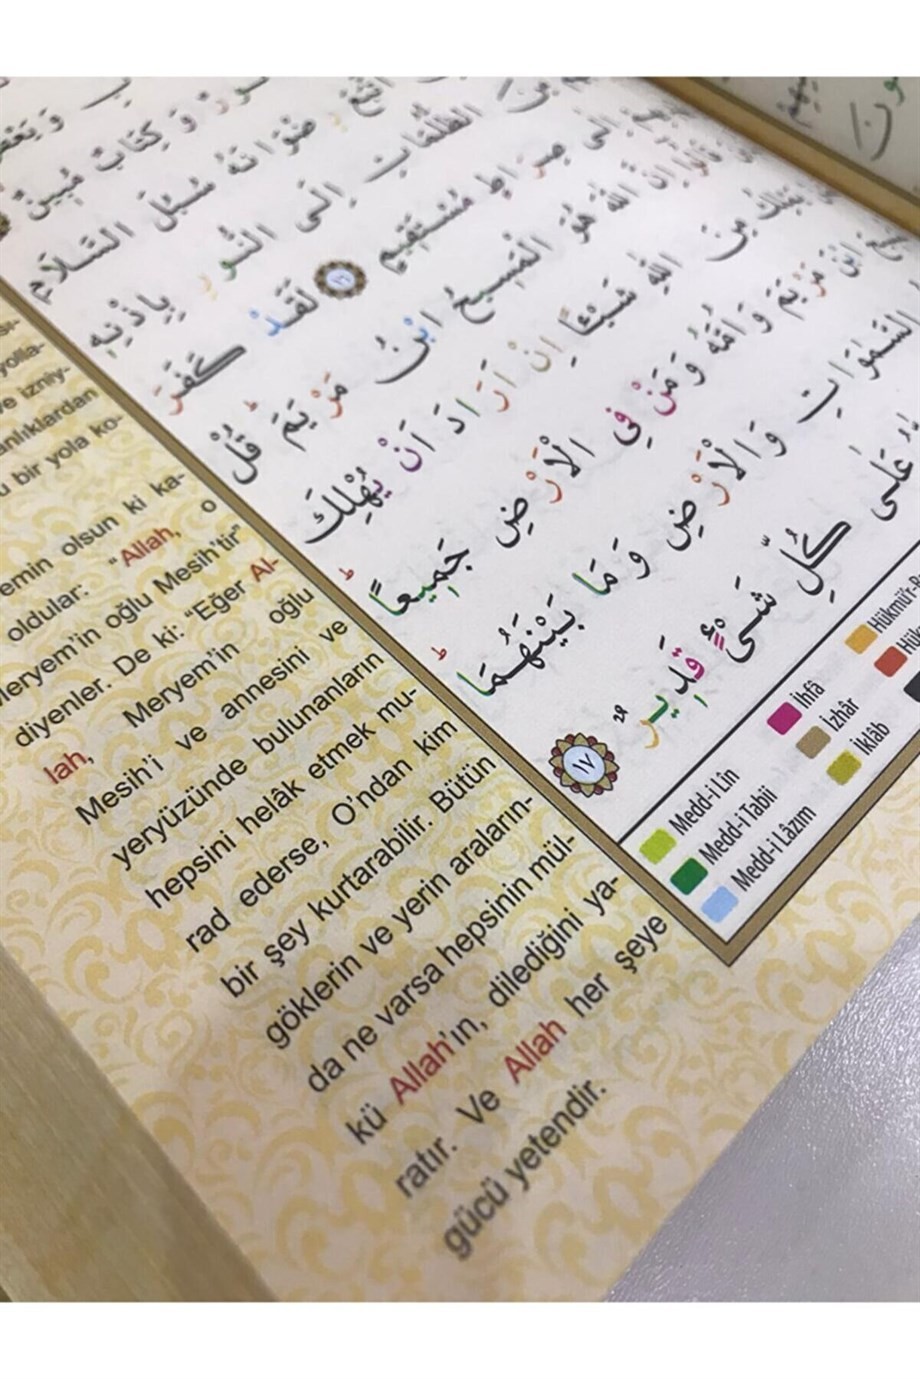 وَكِتَابٌ مُبِينٌ
رِضْوَانَهُ سُبُلَ السَّلَامِ
الظُّلُمَاتِ اِلَى النُّورِ بِاِذْنِهِ
اِلَى صِرَاطٍ مُسْتَقِيمٍ ١٦ لَقَدْ كَفَرَ
اِنَّ اللّٰهَ هُوَ الْمَسِيحُ ابْنُ مَرْيَمَ قُلْ
يَمْلِكُ مِنَ اللّٰهِ شَيْـًٔا اِنْ اَرَادَ اَنْ يُهْلِكَ
ابْنَ مَرْيَمَ وَاُمَّهُ وَمَنْ فِي الْاَرْضِ جَمِيعًا
السَّمٰوَاتِ وَالْاَرْضِ وَمَا بَيْنَهُمَا
عَلٰى كُلِّ شَيْءٍ قَدِيرٌ ١٧
Medd-i Lîn
Medd-i Tabii
Medd-i Lâzım
İhfâ
İzhâr
İklâb
yolla-
ve izniy-
anlıklardan
bir yola ko-
emin olsun ki ka-
oldular: “Allah, o
Meryem’in oğlu Mesih’tir”
diyenler. De ki: “Eğer Al-
lah, Meryem’in oğlu
Mesih’i ve annesini ve
yeryüzünde bulunanların
hepsini helâk etmek mu-
rad ederse, O’ndan kim
bir şey kurtarabilir. Bütün
göklerin ve yerin araların-
da ne varsa hepsinin mül-
kü Allah’ın, dilediğini ya-
ratır. Ve Allah her şeye
gücü yetendir.